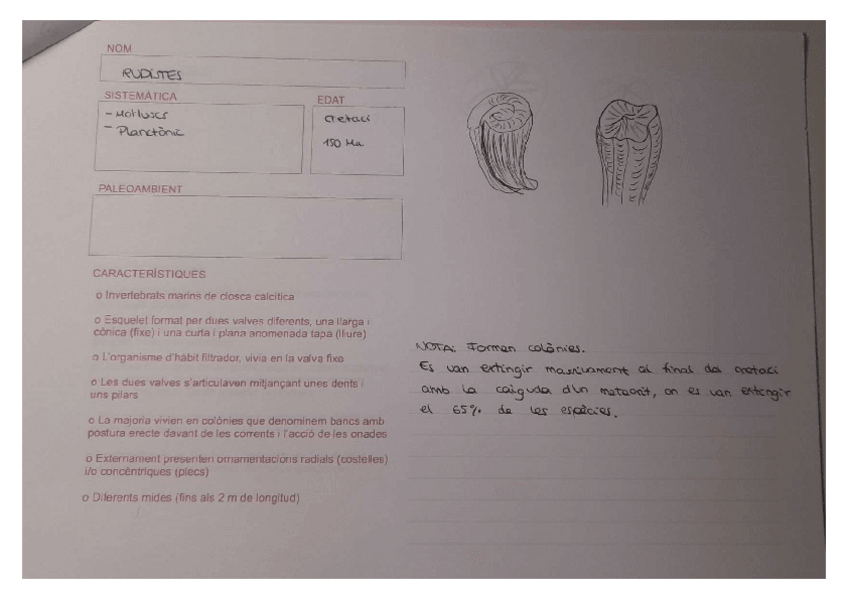 NOM
RUDISTES
SISTEMÀTICA
EDAT
- Mol·luscs
- Planctònic
Cretaci
150 Ma
PALEOAMBIENT
CARACTERÍSTIQUES
o Invertebrats marins de closca calcítica
o Esquelet format per dues valves diferents, una llarga i
cònica (fixe) i una curta i plana anomenada tapa (lliure)
o L'organisme d'hàbit filtrador, vivia en la valva fixe
o Les dues valves s'articulaven mitjançant unes dents i
uns pilars
o La majoria vivien en colònies que denominem bancs amb
postura erecte davant de les corrents i l'acció de les onades
o Externament presenten ornamentacions radials (costelles)
i/o concèntriques (plecs)
o Diferents mides (fins als 2 m de longitud)
NOTA: Formen colònies.
Es van extingir massivament al final del cretaci
amb la caiguda d'un meteorit, on es van extingir
el 65% de les espècies.